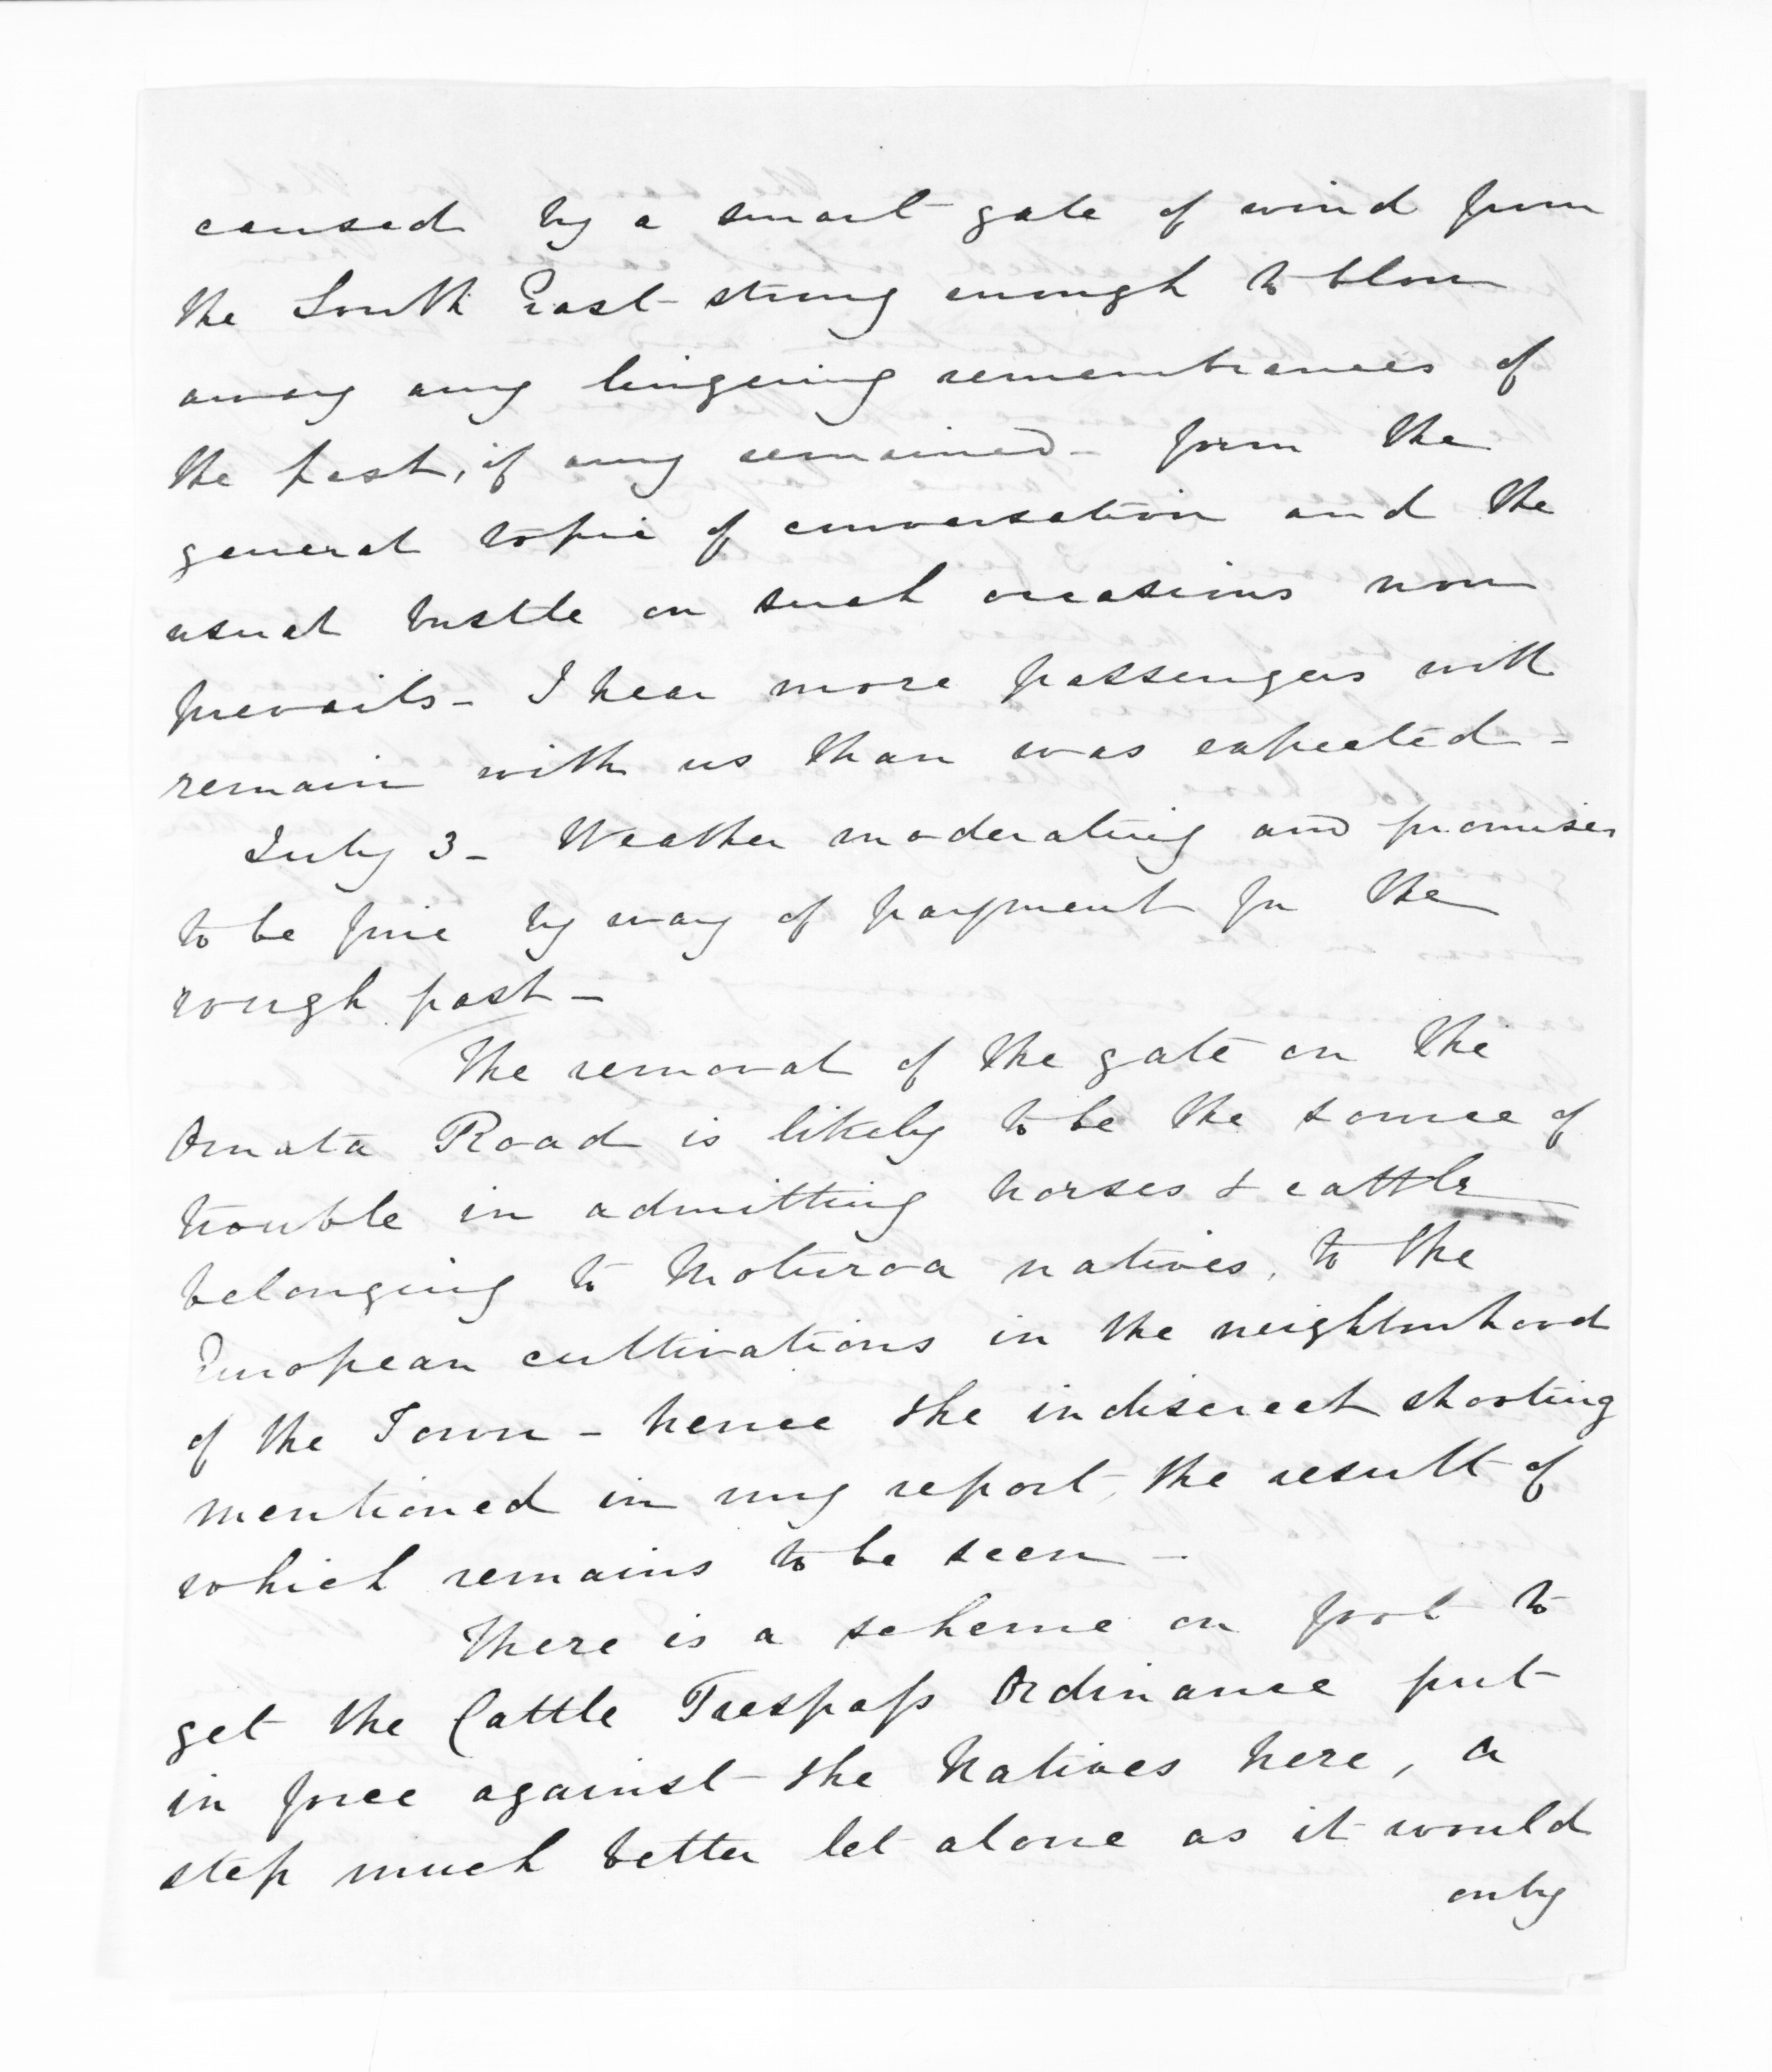 caused by a smart gale of wind from
the South East strong enough to blow
away any lingering remembrances of
the past, if any remained - form the
general topic of conversation and the
usual bustle on such occasions now
prevails - I hear more passengers will
remain with us than was expected -
July 3 - Weather moderating and promises
to be fine by way of payment for the
rough past -
The removal of the gate on the
Omata Road is likely to be the source of
trouble in admitting horses & cattle
belonging to Moturoa natives, to the
European cultivations in the neighbourhood
of the Town - hence the indiscreet shooting
mentioned in my report, the result of
which remains to be seen -
There is a scheme on foot to
get the Cattle Trespass Ordinance put
in force against the Natives here, a
step much better let alone as it would
only